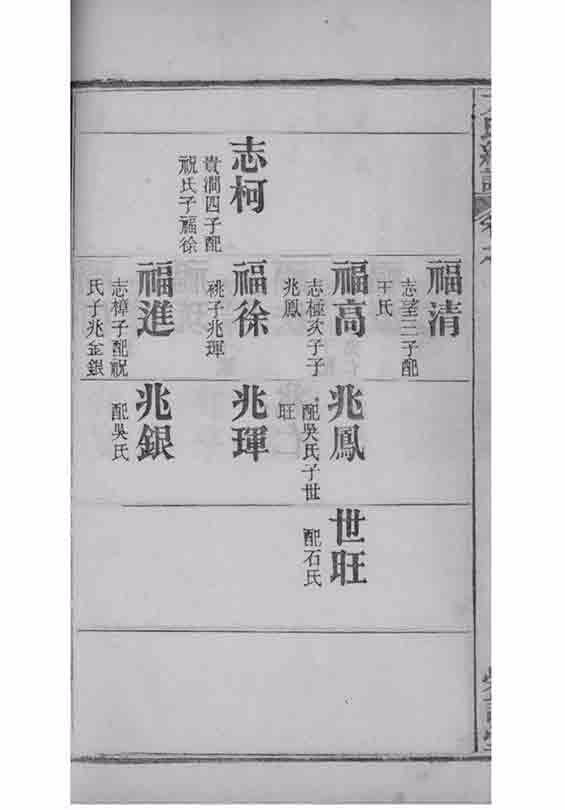 志柯
貴潤四子配
祝氏子福徐
福清
志望三子配
王氏
福高
志極次子子
兆鳳
福徐
祧子兆琿
福進
志樟子配祝
氏子兆金銀
兆鳳
配吳氏子世
旺
兆琿
兆銀
配吳氏
世旺
配石氏